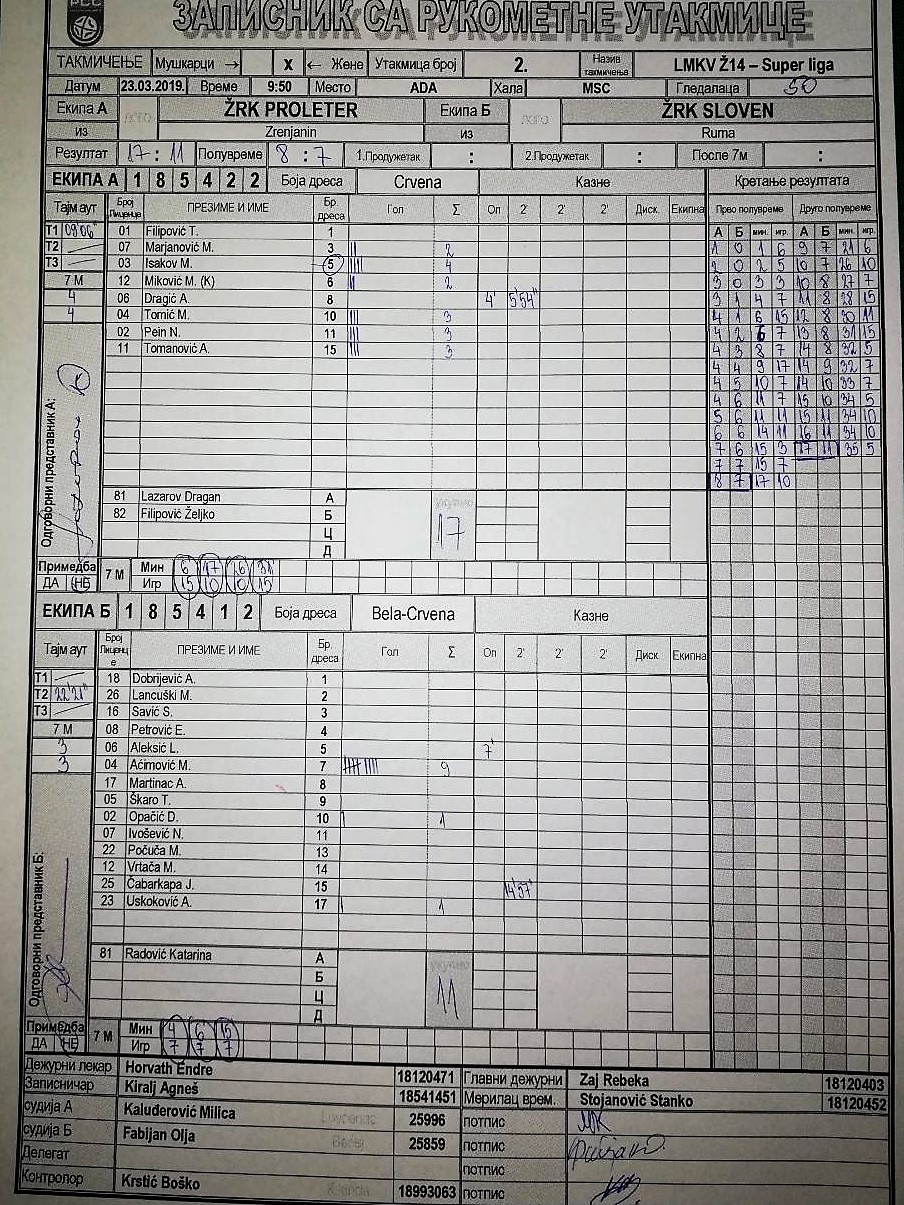 РСС
ЗАПИСНИК СА РУКОМЕТНЕ УТАКМИЦЕ
ТАКМИЧЕЊЕ Мушкарци → x ← Жене Утакмица број 2. Назив такмичења LMKV Ž14 – Super liga
Датум 23.03.2019. Време 9:50 Место ADA Хала MSC Гледалаца 50
Екипа А ŽRK PROLETER Екипа Б ŽRK SLOVEN
из Zrenjanin из Ruma
Резултат 17 : 11 Полувреме 8 : 7 1.Продужетак : 2.Продужетак : После 7м :
ЕКИПА А 1 8 5 4 2 2 Боја дреса Crvena Казне Кретање резултата
Тајм аут Број Лиценце ПРЕЗИМЕ И ИМЕ Бр. дреса Гол Σ Оп 2' 2' 2' Диск. Екипна Прво полувреме Друго полувреме
А Б мин. игр. А Б мин. игр.
T1 09'06" 01 Filipović T. 1
T2 07 Marjanović M. 3 2
T3 03 Isakov M. 5 4
7 М 12 Miković M. (K) 6 2
4 06 Dragić A. 8 4' 5'54"
4 04 Tomić M. 10 3
02 Pein N. 11 3
11 Tomanović A. 15 3
1 0 1 6 9 7 21 6
2 0 2 5 10 7 26 10
3 0 3 3 10 8 27 7
3 1 4 7 11 8 28 15
4 1 6 15 12 8 30 11
4 2 6 7 13 8 31 15
4 3 8 7 14 8 32 5
4 4 9 17 14 9 32 7
4 5 10 7 14 10 33 7
4 6 11 7 15 10 34 5
5 6 11 11 15 11 34 10
6 6 14 11 16 11 34 10
7 6 15 3 17 11 35 5
7 7 15 7
8 7 17 10
Одговорни представник А:
81 Lazarov Dragan А укупно
82 Filipović Željko Б 17
Ц
Д
Примедба 7 М Мин 6 17 26 31
ДА НЕ Игр 15 10 10 15
ЕКИПА Б 1 8 5 4 1 2 Боја дреса Bela-Crvena Казне
Тајм аут Број Лиценце ПРЕЗИМЕ И ИМЕ Бр. дреса Гол Σ Оп 2' 2' 2' Диск. Екипна
T1 18 Dobrijević A. 1
T2 22'21" 26 Lancuški M. 2
T3 16 Savić S. 3
7 М 08 Petrović E. 4
3 06 Aleksić L. 5 7'
3 04 Aćimović M. 7 9
17 Martinac A. 8
05 Škaro T. 9
02 Opačić D. 10 1
07 Ivošević N. 11
22 Počuča M. 13
12 Vrtača M. 14
25 Čabarkapa J. 15 14'57"
23 Uskoković A. 17 1
Одговорни представник Б:
81 Radović Katarina А укупно
Б 11
Ц
Д
Примедба 7 М Мин 4 6 15
ДА НЕ Игр 7 7 7
Дежурни лекар Horvath Endre 18120471 Главни дежурни Zaj Rebeka 18120403
Записничар Kiralj Agneš 18541451 Мерилац врем. Stojanović Stanko 18120452
судија А Kaluđerović Milica 25996 потпис
судија Б Fabijan Olja 25859 потпис
Делегат потпис
Контролор Krstić Boško 18993063 потпис